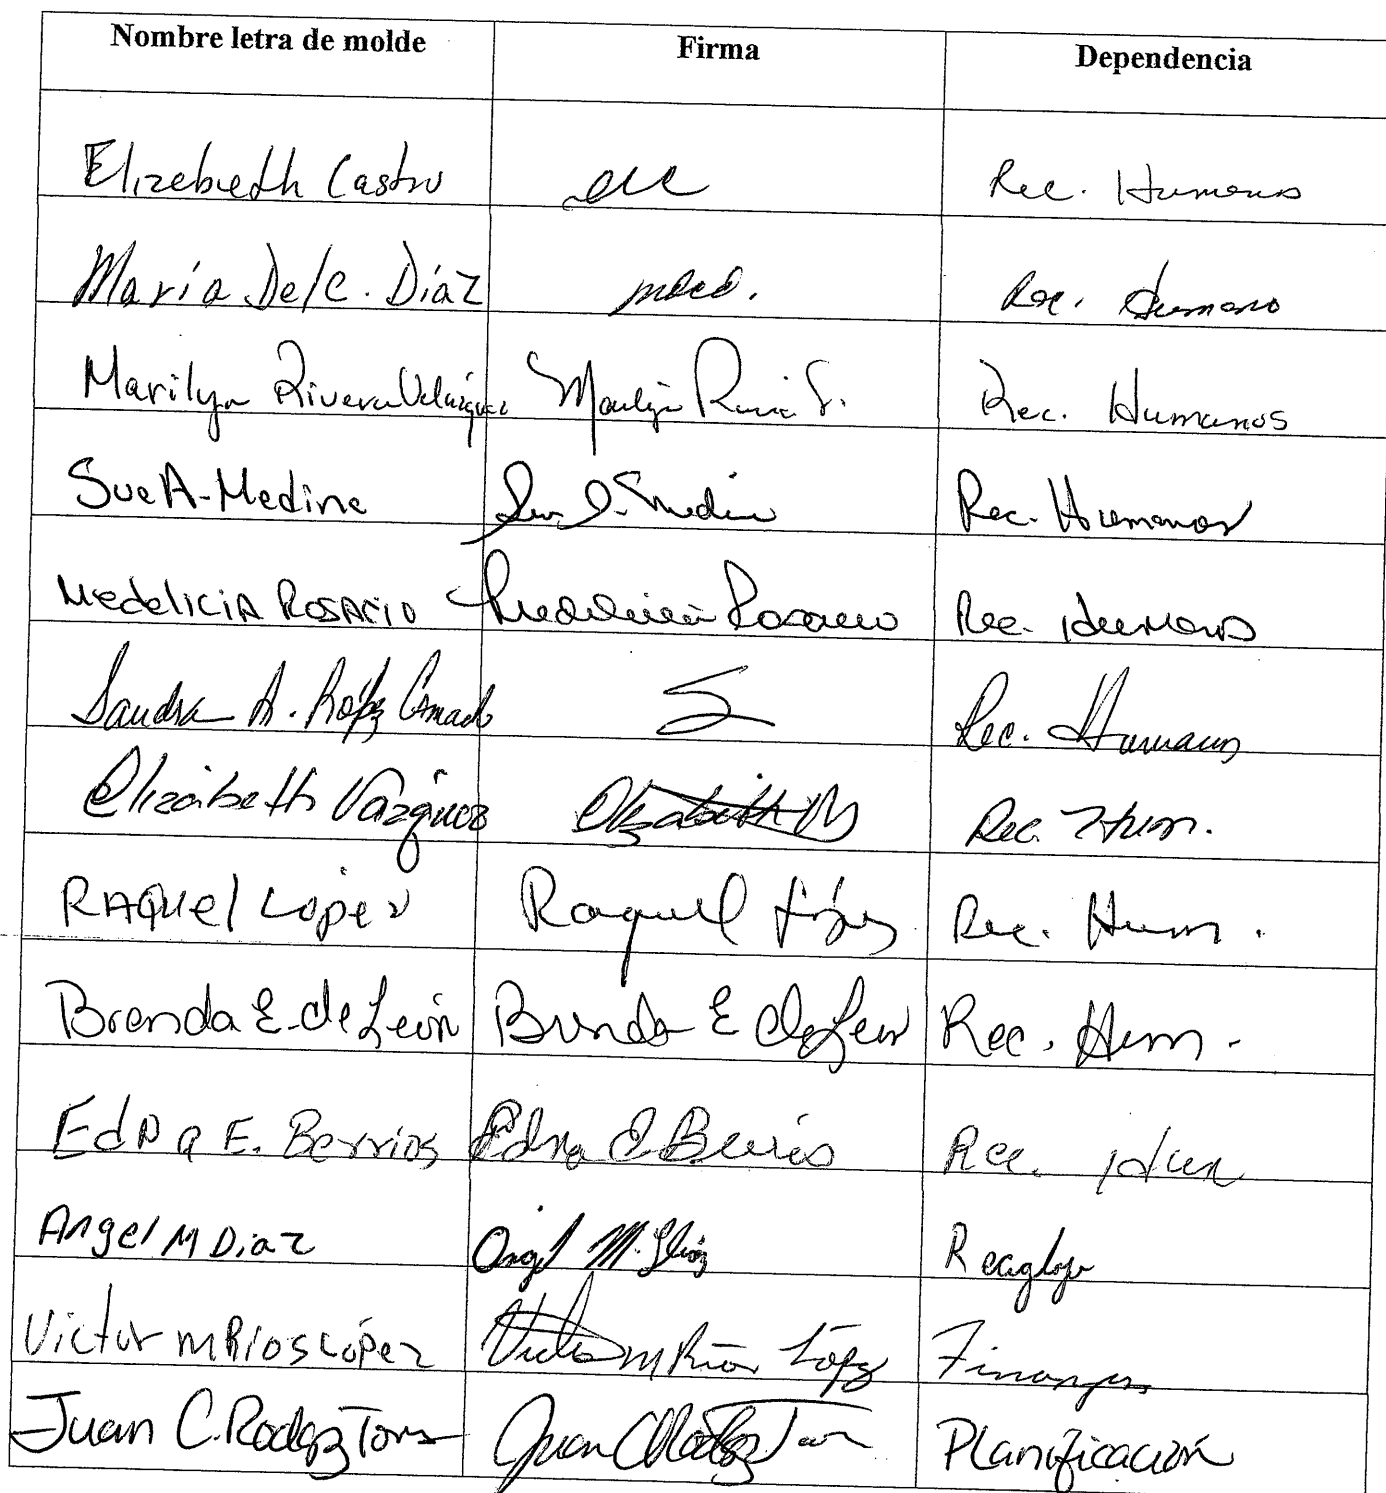 Nombre letra de molde Firma Dependencia
Elizebeth Castro ecc Rec. Humanos
María Del C. Díaz mdcd. Rec. Humano
Marilyn Rivera Velázquez Marilyn Rivera V. Rec. Humanos
Sue A. Medina Sue A. Medina Rec. Humanos
Medelicia Rosario Medelicia Rosario Rec. Humanos
Sandra A. López S Rec. Humanos
Elizabeth Vázquez Elizabeth Rec. Hum.
Raquel López Raquel López Rec. Hum.
Brenda E. de León Brenda E de León Rec. Hum.
Edna E. Berrios Edna E. Berrios Rec. Hum
Angel M Diaz Angel M. Díaz
Victor M Rios López Victor M Ríos López Finanzas
Juan C. Rodgz Torres Juan C Rodgz Planificación